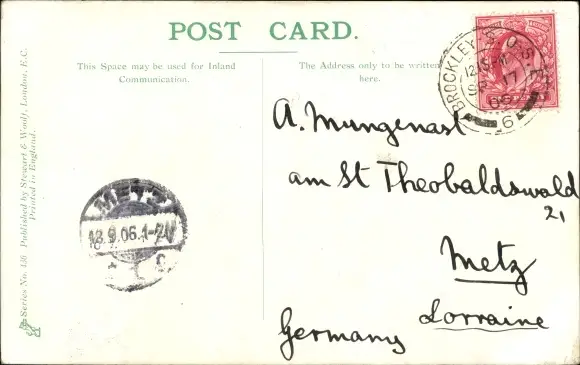 POST CARD.
This Space may be used for Inland
Communication.
The Address only to be written
here.
Series No. 436 Published by Stewart & Woolf, London, E.C.
Printed in England.
BROCKLEY S.O. S.E.
SP 17
06
6
METZ
18.9.06.1-2N
A. Mungenast
am St Theobaldswald
21
Metz
Lorraine
Germany